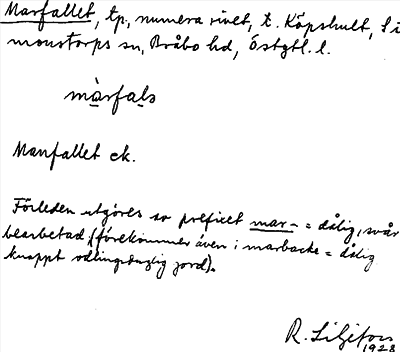 Marfallet, tp, numera rivet, t. Köpshult, Si
monstorps sn, Bråbo hd, Östgtl. l.
màrfals
Marfallet ek.
Förleden utgöres av prefixet mar- = dålig, svår
bearbetad, (förekommer även i marbacke = dålig
knappt odlingsduglig jord).
R. Liljefors
1928